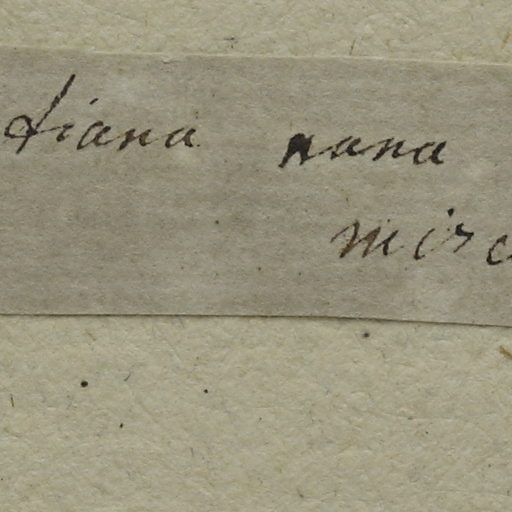 tiana nana
misc